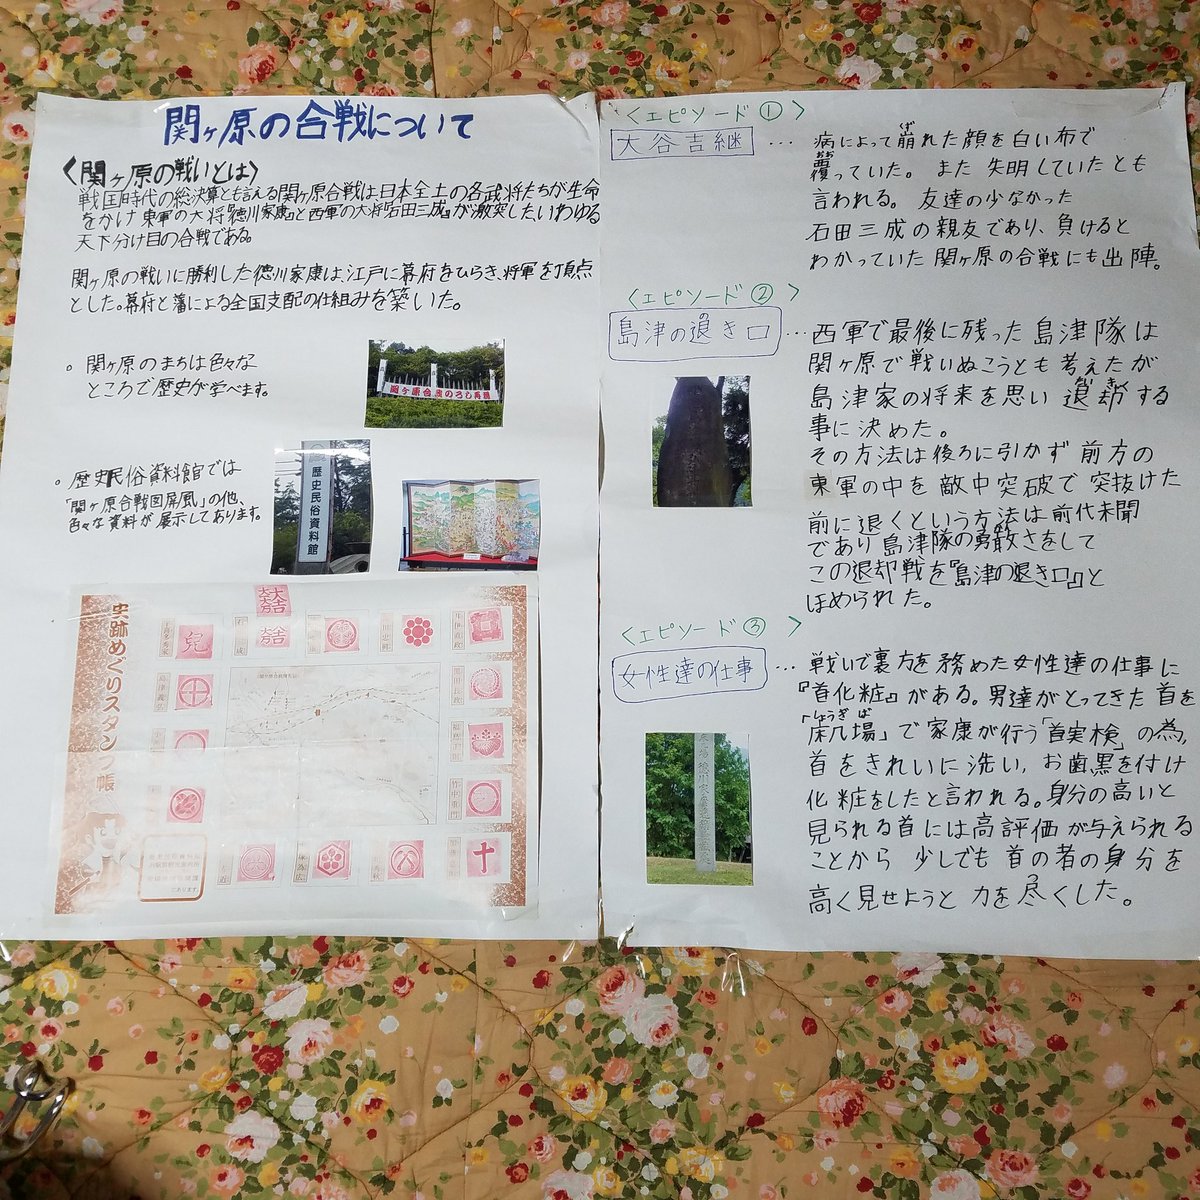 関ヶ原の合戦について
<関ヶ原の戦いとは>
戦国時代の総決算とも言える関ヶ原合戦は、日本全土の各武将たちが生命
をかけ東軍の大将『徳川家康』と西軍の大将『石田三成』が激突したいわゆる
天下分け目の合戦である。
関ヶ原の戦いに勝利した徳川家康は、江戸に幕府をひらき、将軍を頂点
とした。幕府と藩による全国支配の仕組みを築いた。
。関ヶ原のまちは色々な
ところで歴史が学べます。
関ヶ原合戦のろし再現
。歴史民俗資料館では
「関ヶ原合戦図屏風」の他、
色々な資料が展示してあります。
歴史民俗資料館
史跡めぐりスタンプ帳
大一大万大吉
兒
島津義弘
井伊直政
黒田長政
福島正則
竹中重門
<エピソード①>
大谷吉継
… 病によって崩れた顔を白い布で
覆っていた。また失明していたとも
言われる。友達の少なかった
石田三成の親友であり、負けると
わかっていた関ヶ原の合戦にも出陣。
<エピソード②>
島津の退き口
… 西軍で最後に残った島津隊は
関ヶ原で戦いぬこうとも考えたが
島津家の将来を思い退却する
事に決めた。
その方法は後ろに引かず前方の
東軍の中を敵中突破で突抜けた
前に退くという方法は前代未聞
であり島津隊の勇敢さをして
この退却戦を『島津の退き口』と
ほめられた。
<エピソード③>
女性達の仕事
… 戦いで裏方を務めた女性達の仕事に
『首化粧』がある。男達がとってきた首を
「床几場」で家康が行う「首実検」の為、
首をきれいに洗い、お歯黒を付け
化粧をしたと言われる。身分の高いと
見られる首には高評価が与えられる
ことから少しでも首の者の身分を
高く見せようと力を尽くした。